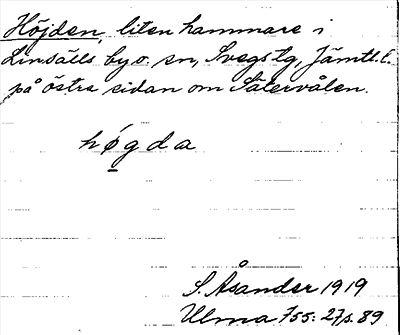 Höjden, liten hammare i
Linsälls by o. sn, Svegs tg, Jämtl. l.
på östra sidan om Sätervålen.
hǿ̠gda
S. Åsander 1919
Ulma 755: 27 s. 89